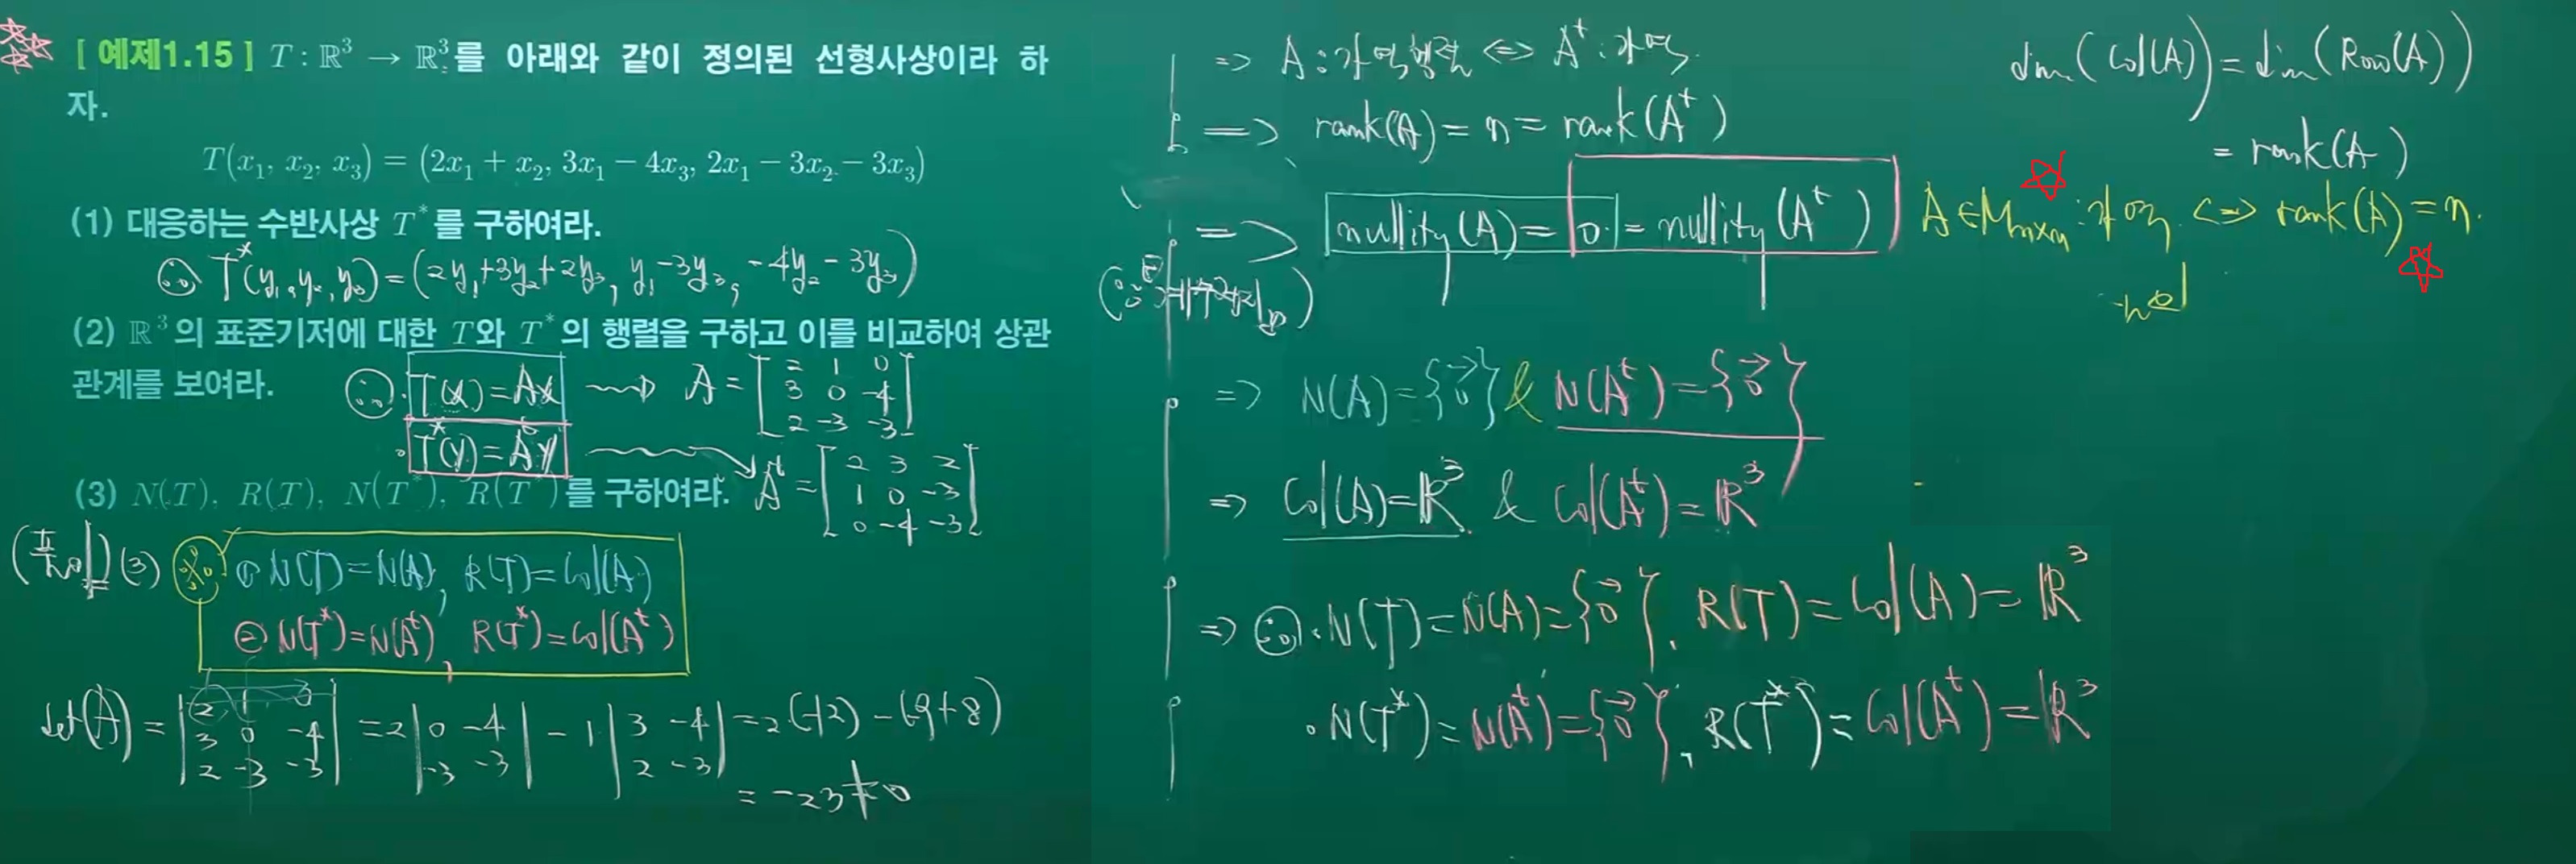 [ 예제1.15 ] T : ℝ³ → ℝ³를 아래와 같이 정의된 선형사상이라 하
자.
T(x₁, x₂, x₃) = (2x₁ + x₂, 3x₁ − 4x₃, 2x₁ − 3x₂ − 3x₃)
(1) 대응하는 수반사상 T* 를 구하여라.
T*(y₁, y₂, y₃) = (2y₁+3y₂+2y₃, y₁−3y₃, −4y₂−3y₃)
(2) ℝ³의 표준기저에 대한 T와 T*의 행렬을 구하고 이를 비교하여 상관
관계를 보여라.
T(X) = AX → A = [2 1 0
3 0 −4
2 −3 −3]
T*(Y) = AᵗY → Aᵗ = [2 3 2
1 0 −3
0 −4 −3]
(3) N(T), R(T), N(T*), R(T*)를 구하여라.
(풀이) (3) ※ ① N(T)=N(A), R(T)=Col(A)
② N(T*)=N(Aᵗ), R(T*)=Col(Aᵗ)
det(A) = |2 1 0
3 0 −4
2 −3 −3| = 2|0 −4
−3 −3| − 1|3 −4
2 −3| = 2(−12) − (−9+8)
= −23 ≠ 0
⇒ A : 가역행렬 ⇔ Aᵗ : 가역
⇒ rank(A) = n = rank(Aᵗ)
⇒ nullity(A) = 0 = nullity(Aᵗ)
⇒ N(A) = {0⃗} & N(Aᵗ) = {0⃗}
⇒ Col(A) = ℝ³ & Col(Aᵗ) = ℝ³
⇒ ∴ · N(T) = N(A) = {0⃗}, R(T) = Col(A) = ℝ³
· N(T*) = N(Aᵗ) = {0⃗}, R(T*) = Col(Aᵗ) = ℝ³
dim(Col(A)) = dim(Row(A))
= rank(A)
A ∈ Mₙₓₙ : 가역 ⇔ rank(A) = n.